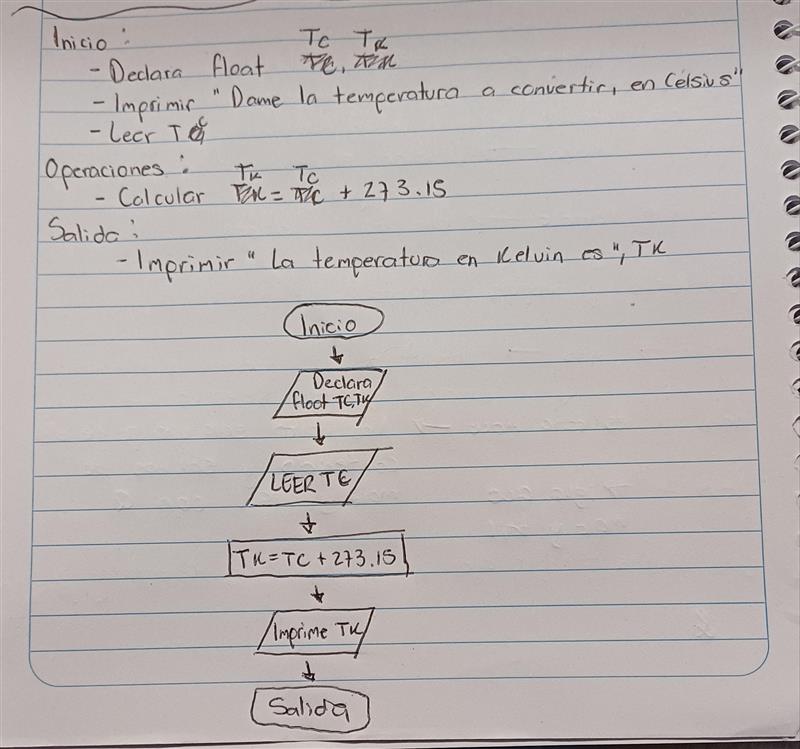 Inicio:
Tc Tk
- Declara float
- Imprimir "Dame la temperatura a convertir, en Celsius"
- Leer Tc
Operaciones:
Tk Tc
- Calcular = + 273.15
Salida:
- Imprimir "La temperatura en Kelvin es", TK
Inicio
Declara
float TC, TK
LEER TC
TK = TC + 273.15
Imprime TK
Salida